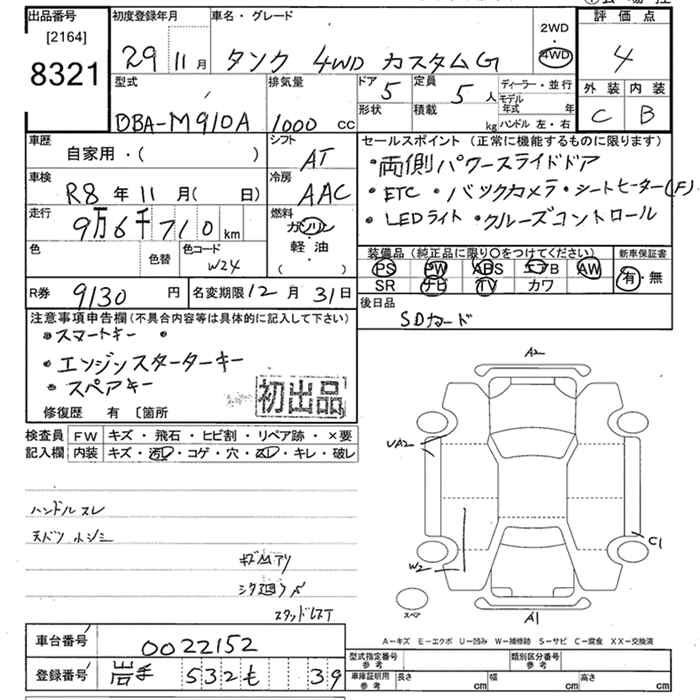 出品番号
[2164]
8321
初度登録年月
29年11月
車名・グレード
タンク 4WD カスタムG
2WD
・
4WD
評価点
4
外装 内装
C B
型式
DBA-M910A
排気量
1000 cc
ドア 5
定員 5 人
形状
積載 kg
ディーラー・並行
モデル年式 年
ハンドル 左・右
車歴
自家用・( )
シフト
AT
車検
R8年11月( 日)
冷房
AAC
走行
9万6千710km
燃料
ガソリン
軽・油
( )
色
色替
色コード
W24
R券 9130円
名変期限 12月31日
セールスポイント(正常に機能するものに限ります)
・両側パワースライドドア
・ETC・バックカメラ・シートヒーター(F)
・LEDライト・クルーズコントロール
装備品(純正品に限り○をつけてください)
PS PW ABS エアB AW
SR ナビ TV カワ
新車保証書
有・無
後日品
SDカード
注意事項申告欄(不具合内容等は具体的に記入して下さい)
・スマートキー ・
・エンジンスターターキー
・スペアキー
初出品
修復歴 有〔箇所
検査員
記入欄
FW キズ・飛石・ヒビ割・リペア跡・×要
内装 キズ・汚レ・コゲ・穴・スレ・キレ・破レ
ハンドルスレ
天バリ シミ
キズ凹アリ
スタッドレスT
A2
UA2
W2
C1
A1
スペア
A-キズ E-エクボ U-凹み W-補修跡 S-サビ C-腐食 XX-交換済
車台番号 0022152
登録番号 岩手 532 も 39
型式指定番号
参考
類別区分番号
参考
車庫証明用
参考
長さ cm
幅 cm
高さ cm